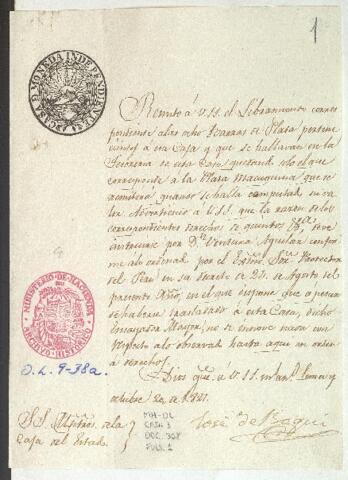 1
CASA D. MONEDA INDEPENDIENTE
Remito á V.SS. el Libramiento corres
pondiente alas ocho barras de Plata pertene
cientes á esa Caja y que se hallavan en la
Tesoreria de esta Casa quedando solo el que
corresponde á la Plata Macuquina que se
remitirá quando se halla
á V.SS. que la razon de los
correspondientes derechos de quintos &a. deve
por Dn. Ventura Aguilar confor
me alo ordenado por el Exmo. Sor. Protector
del Perú en su decreto de 20 de Agosto del
presente Año, en el que dispone que á pesar
se haberse trasladado á esta Casa, dicho
Ensayador Mayor, no se innove nada con
respecto alo observado hasta aqui en orden
á derechos.
Dios gue. á V.SS. ms. as. Lima y
octubre 20 de 1821.
José de Boqui
SS. Mtros. de la
Caja del Estado.
MINISTERIO DE HACIENDA
ARCHIVO HISTORICO
O.L. 9-38a.
MH-OL
CAJA 1
DOC. 38
FOLS. 1